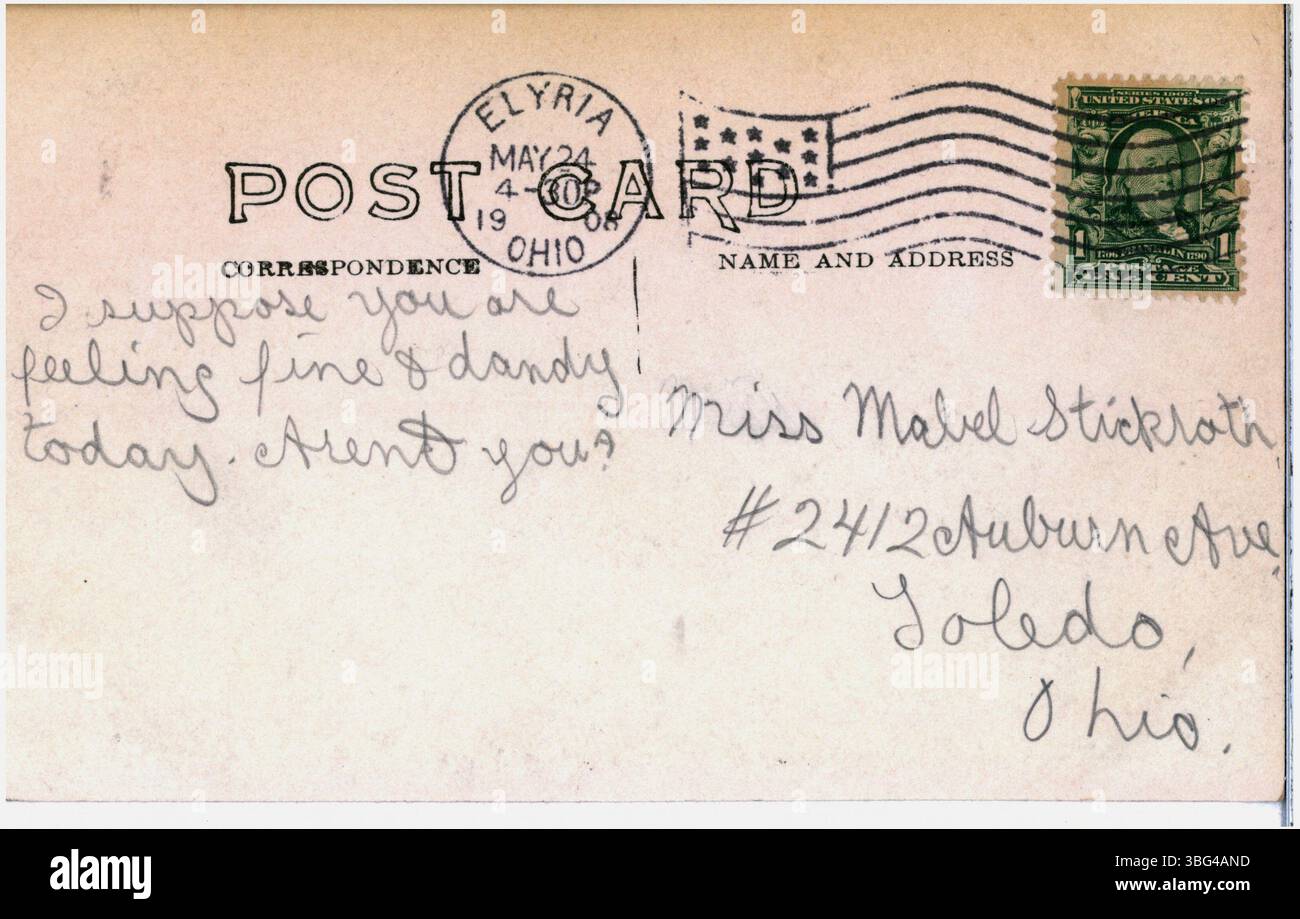 ELYRIA
MAY 24
4-30P
1908
OHIO
POST CARD
CORRESPONDENCE
NAME AND ADDRESS
SERIES 1902
UNITED STATES OF
AMERICA
1 FRANKLIN 1
1706 1790
POSTAGE
ONE CENT
I suppose you are
feeling fine & dandy
today. Arent you?
Miss Mabel Stickroth,
#2412 Auburn Ave,
Toledo,
Ohio.
alamy
alamy
Image ID: 3BG4AND
www.alamy.com